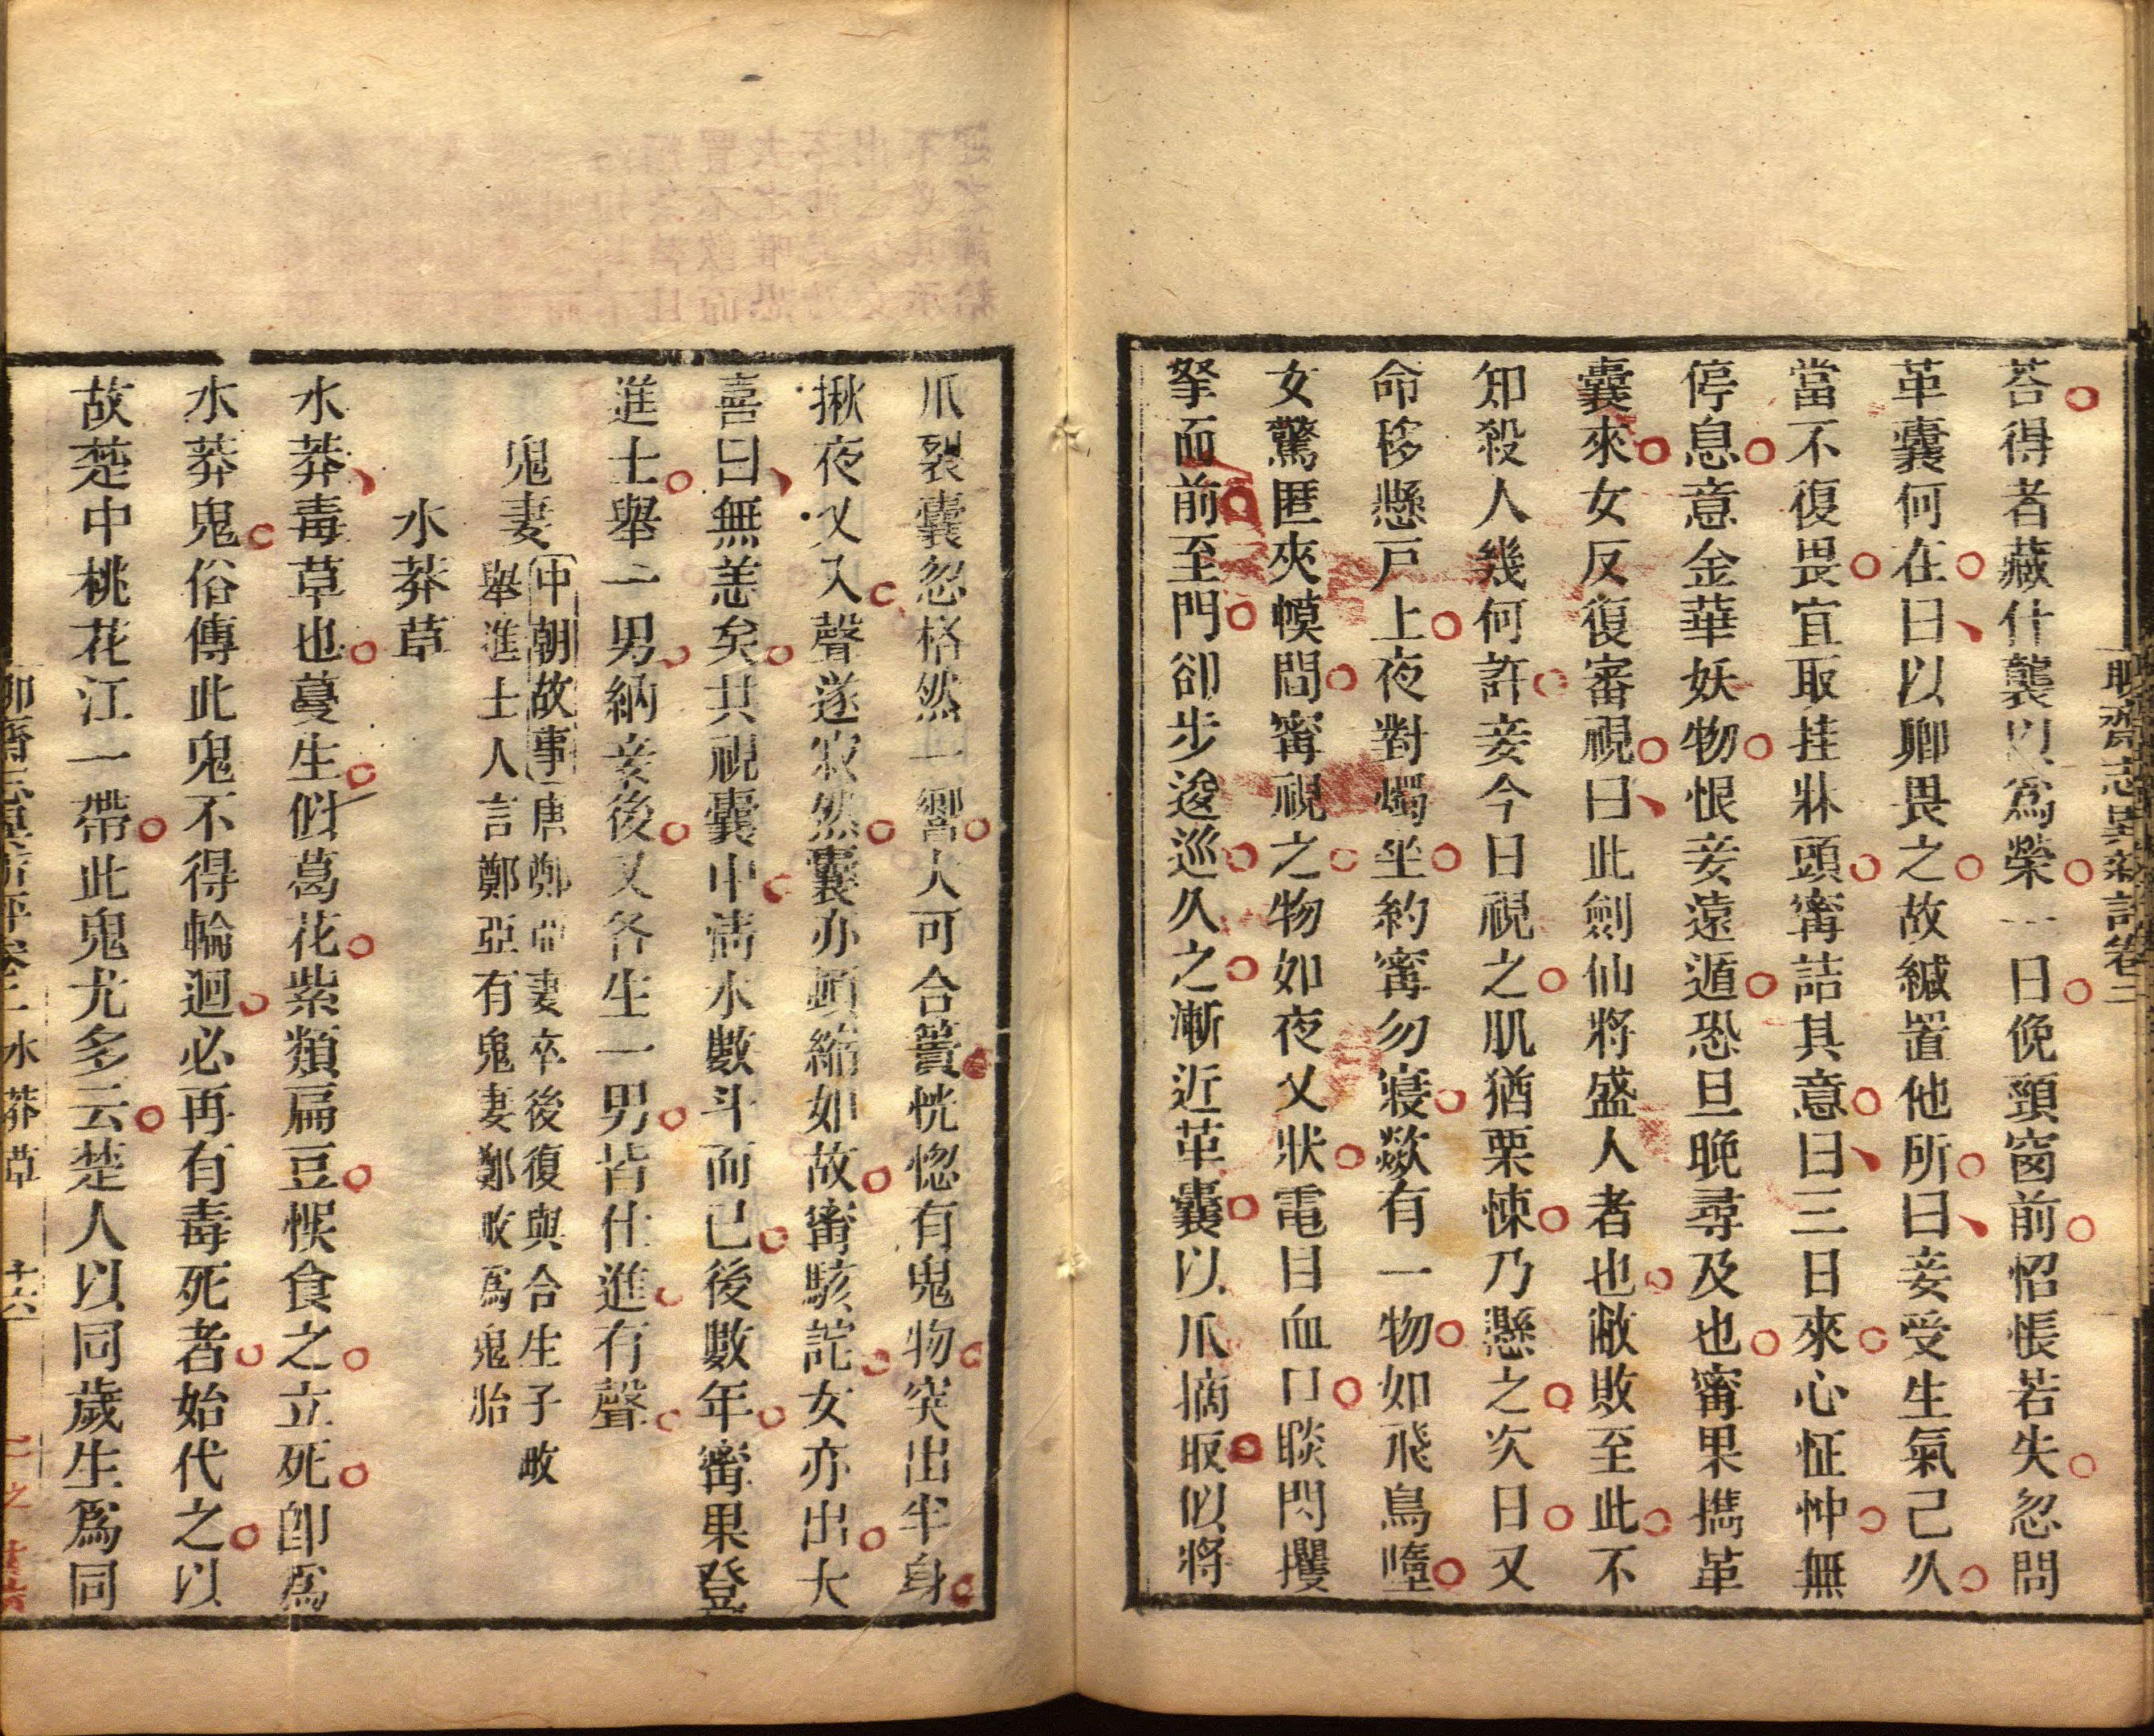 聊齋志異新評卷二
荅得者藏什襲以爲榮一日俛頸窗前怊悵若失忽問
革囊何在曰以卿畏之故緘置他所曰妾受生氣己久
當不復畏宜取挂牀頭甯詰其意曰三日來心怔忡無
停息意金華妖物恨妾遠遁恐旦晚尋及也甯果攜革
囊來女反復審視曰此劍仙將盛人者也敝敗至此不
知殺人幾何許妾今日視之肌猶栗悚乃懸之次日又
命移懸戸上夜對燭坐約甯勿寢欻有一物如飛鳥墮
女驚匿夾幙間甯視之物如夜叉狀電目血口睒閃攫
拏而前至門卻步逡巡久之漸近革囊以爪摘取似將
爪裂囊忽格然一響大可合簣恍惚有鬼物突出半身
揪夜叉入聲遂寂然囊亦頓縮如故甯駭詫女亦出大
喜曰無恙矣共視囊中清水數斗而已後數年甯果登
進士舉一男納妾後又各生一男皆仕進有聲
鬼妻
中朝故事 唐鄭亞妻卒後復與合生子畋
舉進士人言鄭亞有鬼妻鄭畋爲鬼胎
水莽草
水莽毒草也蔓生似葛花紫類扁豆悞食之立死卽爲
水莽鬼俗傳此鬼不得輪迴必再有毒死者始代之以
故楚中桃花江一帶此鬼尤多云楚人以同歲生爲同
聊齋志異新評卷二 水莽草 十六